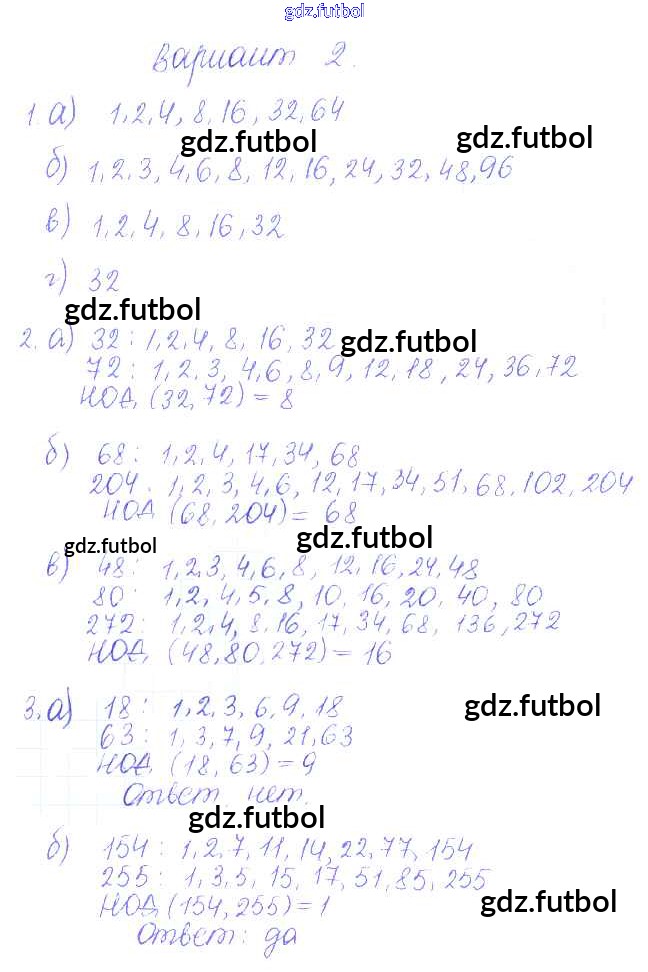 gdz.futbol
Вариант 2.
1. а) 1, 2, 4, 8, 16, 32, 64
gdz.futbol gdz.futbol
б) 1, 2, 3, 4, 6, 8, 12, 16, 24, 32, 48, 96
в) 1, 2, 4, 8, 16, 32
г) 32
gdz.futbol
2. а) 32 : 1, 2, 4, 8, 16, 32 gdz.futbol
72 : 1, 2, 3, 4, 6, 8, 9, 12, 18, 24, 36, 72
НОД (32, 72) = 8
б) 68 : 1, 2, 4, 17, 34, 68
204 : 1, 2, 3, 4, 6, 12, 17, 34, 51, 68, 102, 204
НОД (68, 204) = 68
gdz.futbol gdz.futbol
в) 48 : 1, 2, 3, 4, 6, 8, 12, 16, 24, 48
80 : 1, 2, 4, 5, 8, 10, 16, 20, 40, 80
272 : 1, 2, 4, 8, 16, 17, 34, 68, 136, 272
НОД (48, 80, 272) = 16
3. а) 18 : 1, 2, 3, 6, 9, 18 gdz.futbol
63 : 1, 3, 7, 9, 21, 63
НОД (18, 63) = 9
Ответ нет.
gdz.futbol
б) 154 : 1, 2, 7, 11, 14, 22, 77, 154
255 : 1, 3, 5, 15, 17, 51, 85, 255
НОД (154, 255) = 1 gdz.futbol
Ответ: да